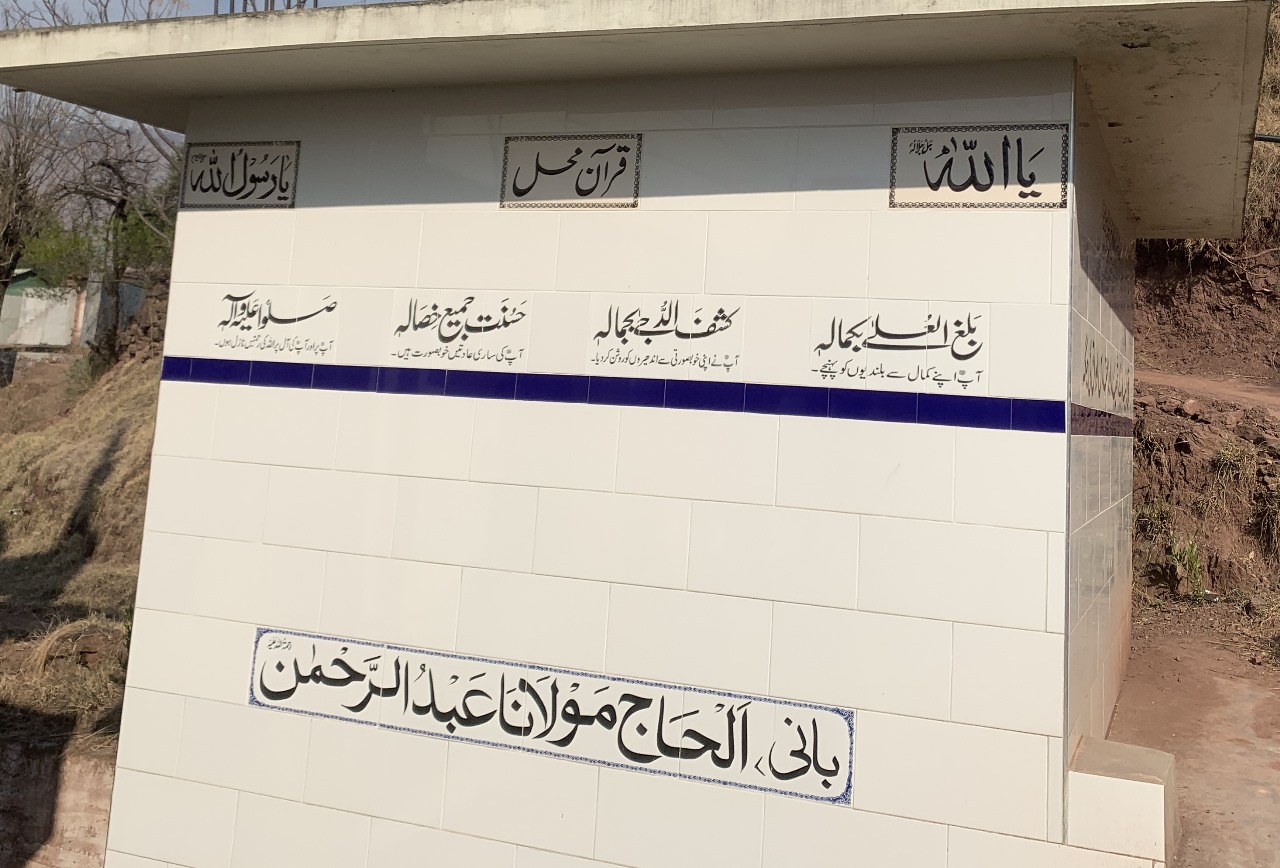 یَا اَللّٰہُ جَلَّ جَلَالُہٗ
قرآن محل
یَا رَسُوْلَ اللّٰہ
بَلَغَ الْعُلےٰ بِکَمَالِہٖ
آپؐ اپنے کمال سے بلندیوں کو پہنچے۔
کَشَفَ الدُّجےٰ بِجَمَالِہٖ
آپؐ نے اپنی خوبصورتی سے اندھیروں کو روشن کر دیا۔
حَسُنَتْ جَمِیْعُ خِصَالِہٖ
آپؐ کی ساری عادتیں خوبصورت ہیں۔
صَلُّوْا عَلَیْہِ وَآلِہٖ
آپؐ پر اور آپؐ کی آل پر اللہ کی رحمتیں نازل ہوں۔
بانی، اَلْحَاج مَوْلَانَا عَبْدُ الرَّحْمٰن رحمۃ اللہ علیہ